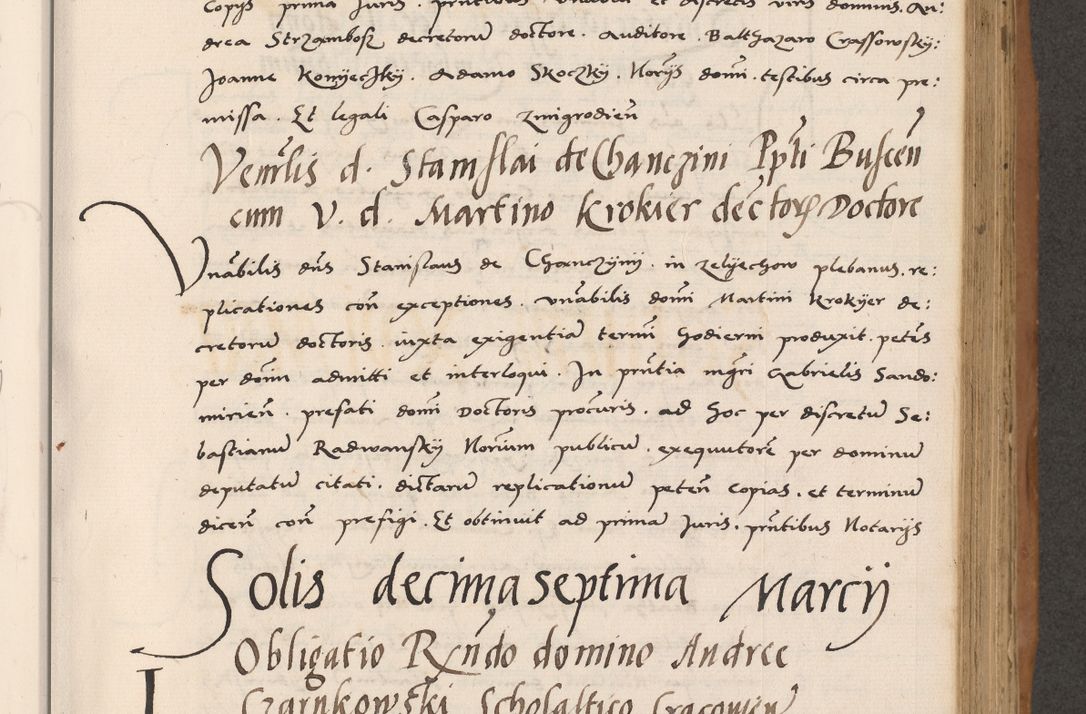 Copijs prima Juris. pntibus Vnabili et discretis viris dominis. An:
drea Strzambosz decretoru doctore. Auditore. Balthazaro Crassowskij:
Joanne Konyeczky. Adamo Skoczky. Norijs domi. testibus circa pre:
missa. Et legali Casparo zmigrodien
Venrlis d. Stanislai de Chanczini Ppti Buscen
cum V. d. Martino Krokier dectorz Doctore
Vnabilis dns Stanislaus de Chanczynij. in zelyechow plebanus. re:
plicationes con exceptiones. vnabilis domi Martini Krokyer de:
cretoru doctoris. iuxta exigentia termi hodierni produxit. petes
per domi admitti et interloqui. In pntia mgri Gabrielis Sando:
mirien. prefati domi Doctoris procuris. ad hoc per discretu Se:
bastianu Radwanskij Norium publicu. exequutore per dominu
deputatu citati. dictaru replicationu peten copias. et terminu
dicen con prefigi. Et obtinuit ad prima Juris. pntibus Notarijs
Solis decima septima Marcij
Obligatio Rndo domino Andree
Czarnkowski Scholastico Cracouien